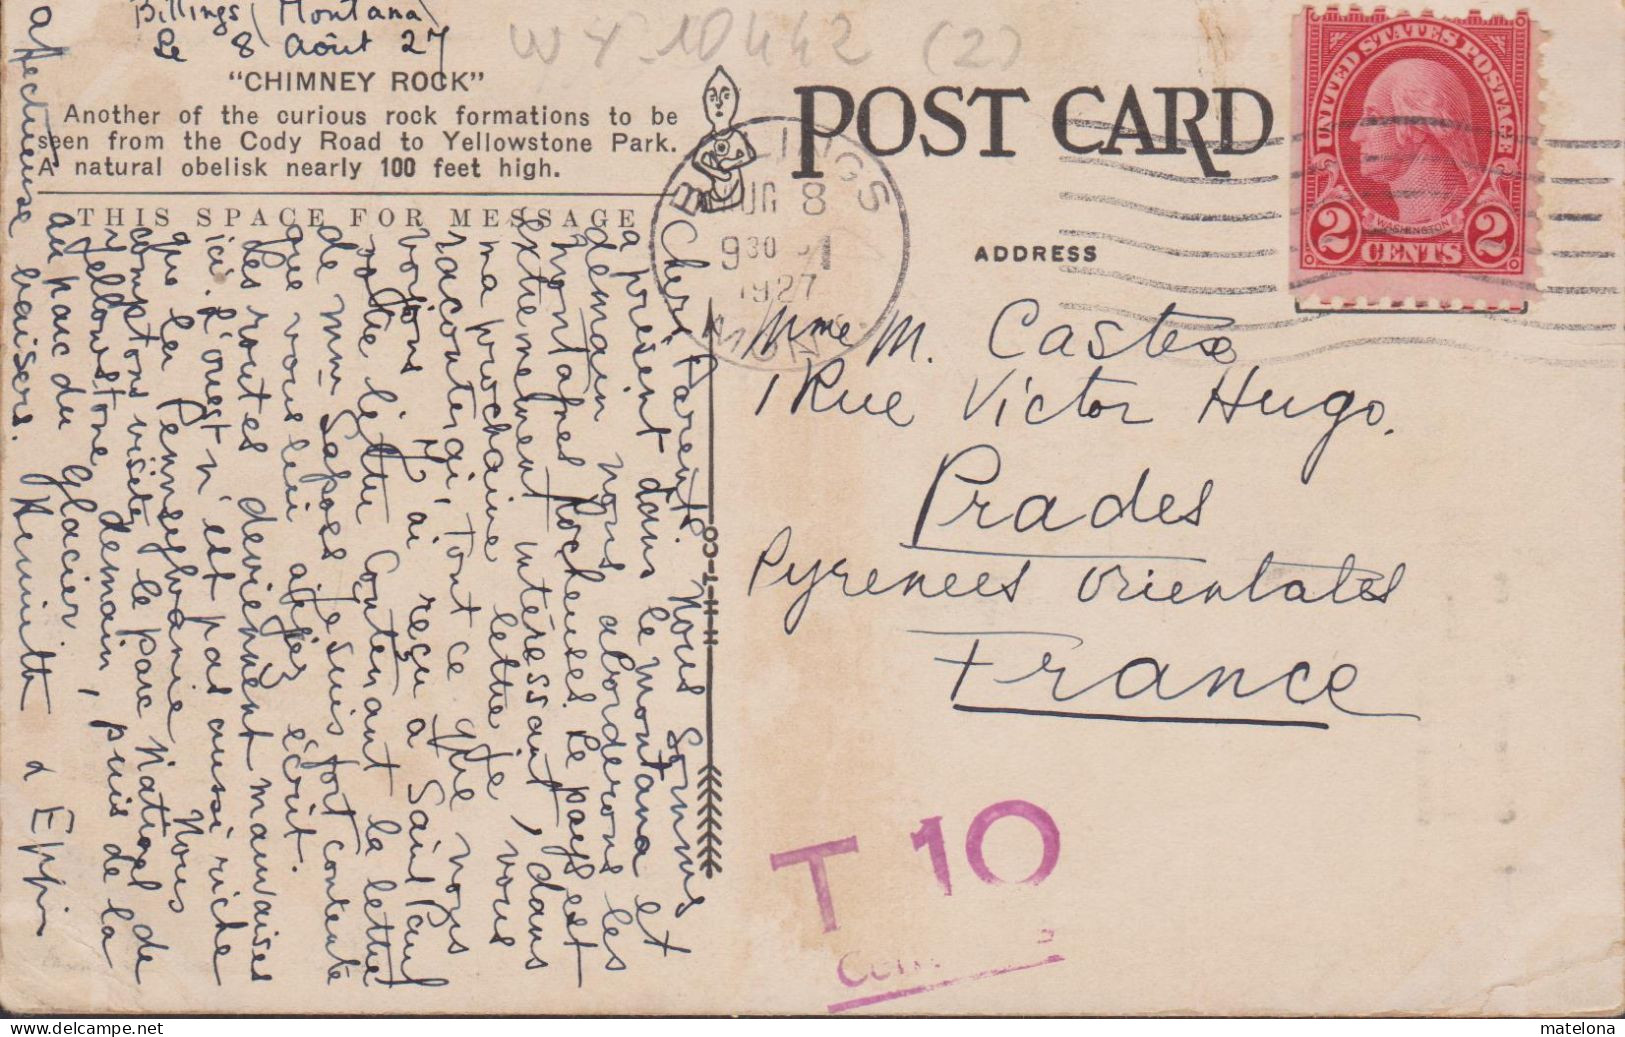 Billings (Montana)
Le 8 Août 27
WY 10442 (2)
"CHIMNEY ROCK"
Another of the curious rock formations to be
seen from the Cody Road to Yellowstone Park.
A natural obelisk nearly 100 feet high.
THIS SPACE FOR MESSAGE
POST CARD
ADDRESS
BILLINGS
AUG 8
9 30
1927
MONT.
UNITED STATES POSTAGE
WASHINGTON
2 CENTS 2
H-H-T-CO
Chers Parents Nous sommes
à présent dans le montana et
demain nous aborderons les
montagnes Rocheuses. Le pays est
extrêmement intéressant, dans
ma prochaine lettre je vous
raconterai, tout ce que nous
voyions. J'ai reçu à Saint Paul
votre lettre contenant la lettre
de Mme je suis fort contente
que vous lui ayiez écrit.
Les routes deviennent mauvaises
ici, l'ouest n'est pas aussi riche
que la Pennsylvanie Nous
comptons visiter le parc National de
Yellowstone demain, puis de là
au parc du Glacier
affectueuse baisers. &
Mme M.
1 Rue Victor Hugo.
Prades
Pyrenees Orientales
France
T 10
matelona